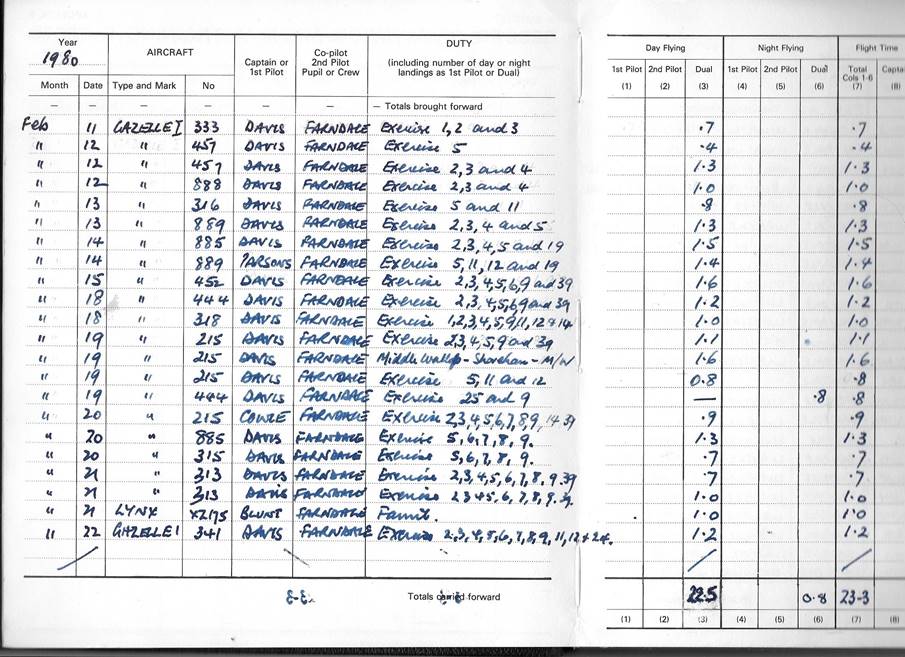 Year 1980 AIRCRAFT Captain or 1st Pilot Co-pilot 2nd Pilot Pupil or Crew DUTY (including number of day or night landings as 1st Pilot or Dual) Day Flying Night Flying Flight Time
Month Date Type and Mark No 1st Pilot 2nd Pilot Dual 1st Pilot 2nd Pilot Dual Total Cols 1-6 Capta
(1) (2) (3) (4) (5) (6) (7) (8)
— — — — — — — Totals brought forward
Feb 11 GAZELLE I 333 DAVIS FARNDALE Exercise 1,2 and 3 .7 .7
" 12 " 457 DAVIS FARNDALE Exercise 5 .4 .4
" 12 " 457 DAVIS FARNDALE Exercise 2,3 and 4 1.3 1.3
" 12 " 888 DAVIS FARNDALE Exercise 2,3 and 4 1.0 1.0
" 13 " 316 DAVIS FARNDALE Exercise 5 and 11 .8 .8
" 13 " 889 DAVIS FARNDALE Exercise 2,3,4 and 5 1.3 1.3
" 14 " 885 DAVIS FARNDALE Exercise 2,3,4,5 and 19 1.5 1.5
" 14 " 889 PARSONS FARNDALE Exercise 5,11,12 and 19 1.4 1.4
" 15 " 452 DAVIS FARNDALE Exercise 2,3,4,5,6,9 and 39 1.6 1.6
" 18 " 444 DAVIS FARNDALE Exercise 2,3,4,5,6,9 and 39 1.2 1.2
" 18 " 318 DAVIS FARNDALE Exercise 1,2,3,4,5,9,11,12+14 1.0 1.0
" 19 " 215 DAVIS FARNDALE Exercise 2,3,4,5,9 and 39 1.1 1.1
" 19 " 215 DAVIS FARNDALE Middle Wallop - Shoreham - M/W 1.6 1.6
" 19 " 215 DAVIS FARNDALE Exercise 5,11 and 12 0.8 .8
" 19 " 444 DAVIS FARNDALE Exercise 25 and 9 — .8 .8
" 20 " 215 FARNDALE Exercise 2,3,4,5,6,7,8,9, 14 39 .9 .9
" 20 " 885 DAVIS FARNDALE Exercise 5,6,7,8,9. 1.3 1.3
" 20 " 315 DAVIS FARNDALE Exercise 5,6,7,8,9. .7 .7
" 21 " 313 DAVIS FARNDALE Exercise 2,3,4,5,6,7,8,9.39 .7 .7
" 21 " 313 DAVIS FARNDALE Exercise 2345,6,7,8,9.39 1.0 1.0
" 21 LYNX XZ175 BLUNT FARNDALE Famil. 1.0 1.0
" 22 GAZELLE I 341 DAVIS FARNDALE Exercise 2,3,4,5,6,7,8,9,11,12+24. 1.2 1.2
Totals carried forward 22.5 0.8 23-3
(1) (2) (3) (4) (5) (6) (7) (8)